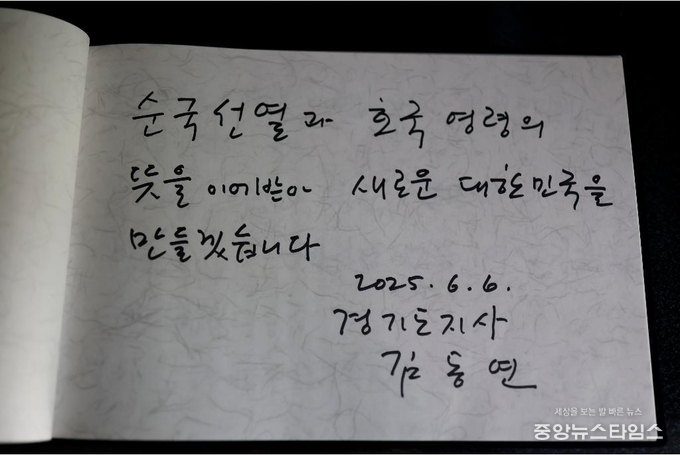 순국선열과 호국영령의
뜻을 이어받아 새로운 대한민국을
만들겠습니다
2025. 6. 6.
경기도지사
김동연
세상을 보는 발 빠른 뉴스
중앙뉴스타임스